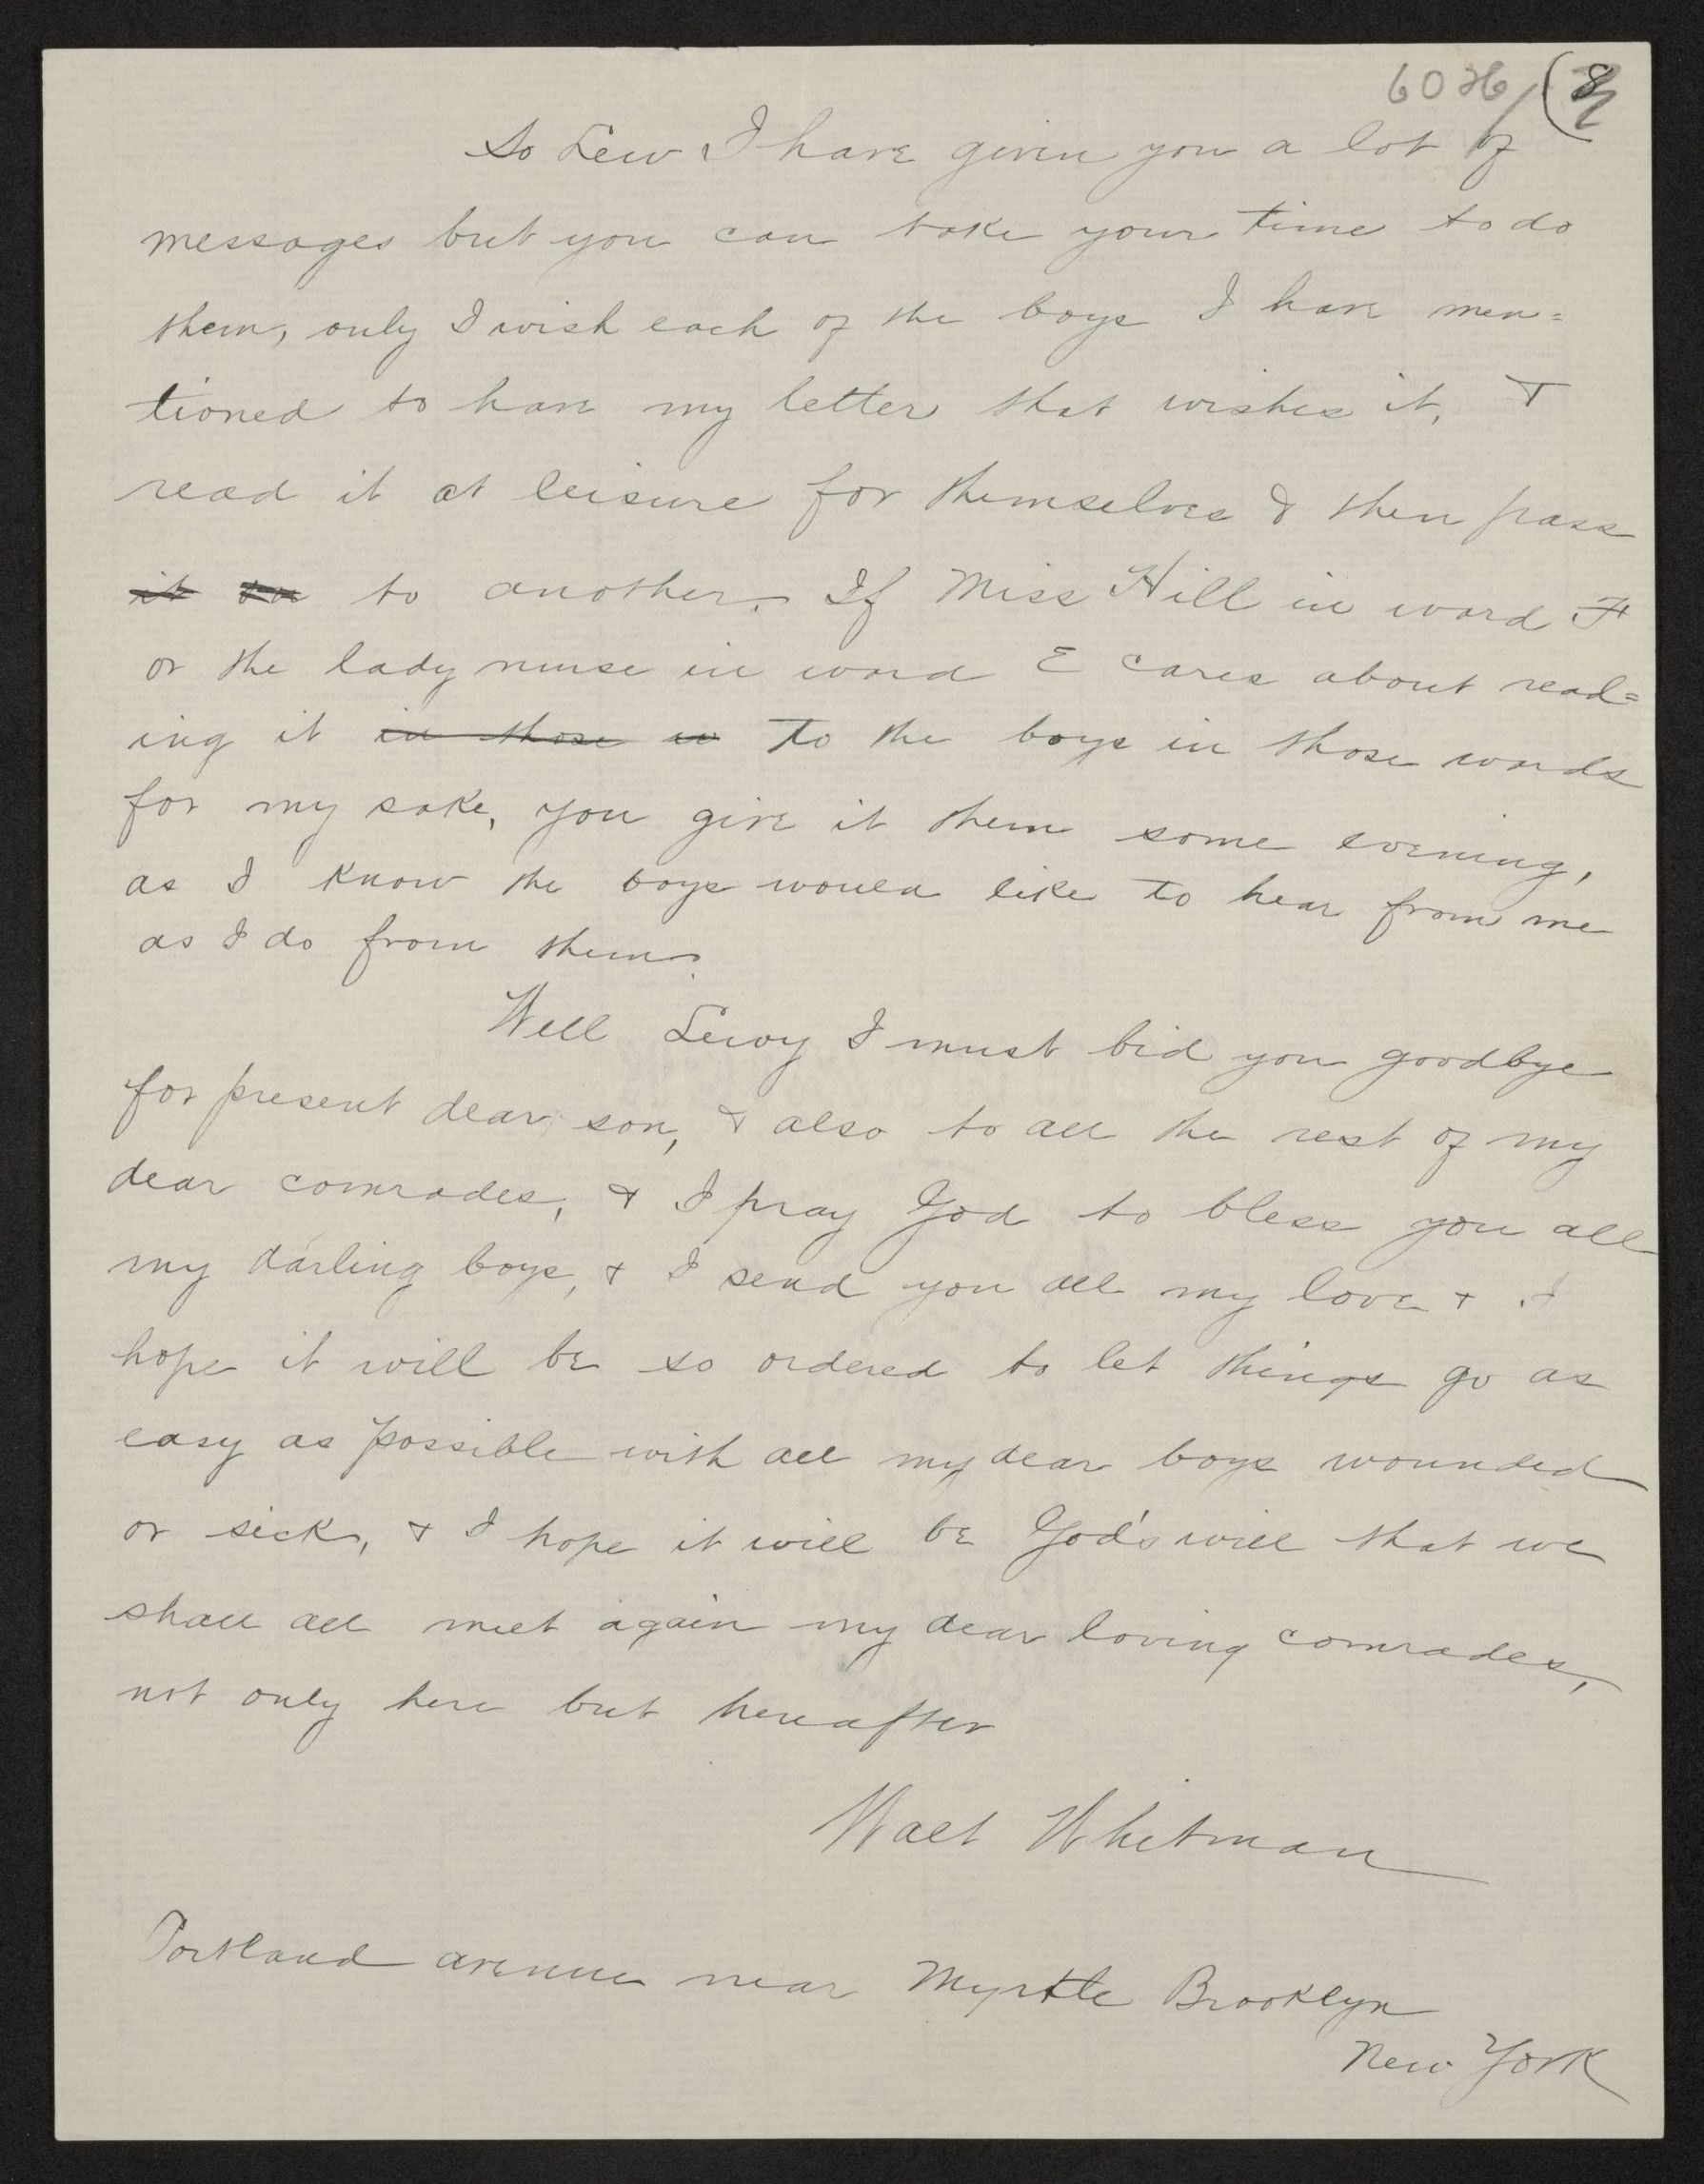 6026 (8
So Lew I have given you a lot of
messages but you can take your time to do
them, only I wish each of the boys I have men=
tioned to have my letter that wishes it, &
read it at leisure for themselves & then pass
it to to another. If Miss Hill in ward F
or the lady nurse in ward E cares about read=
ing it in those w To the boys in those wards
for my sake, you give it them some evening,
as I know the boys would like to hear from me
as I do from them.
Well Lewy I must bid you goodbye
for present dear son, & also to all the rest of my
dear comrades, & I pray God to bless you all
my darling boys, & I send you all my love & I
hope it will be so ordered to let things go as
easy as possible with all my dear boys wounded
or sick, & I hope it will be God's will that we
shall all meet again my dear loving comrades,
not only here but hereafter
Walt Whitman
Portland avenue near Myrtle Brooklyn
New York